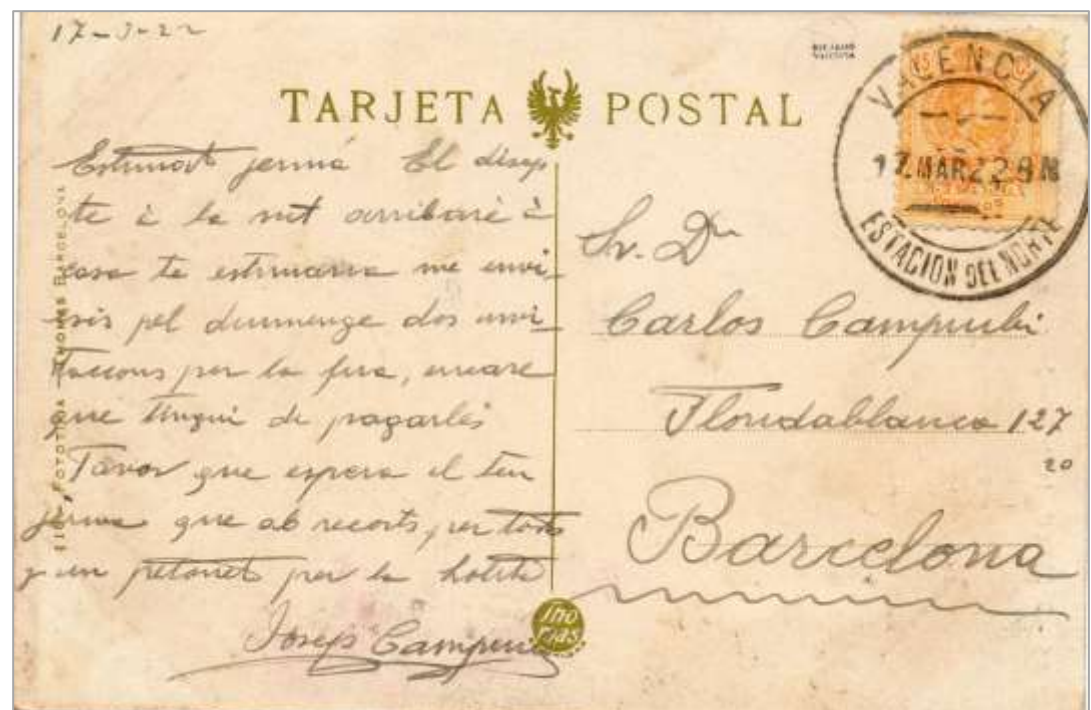 17-3-22
TARJETA POSTAL
VALENCIA
17.MAR22 8N
ESTACION DEL NORTE
Estimat jermá El disap
te à la nit arribaré à
casa te estimaria me envi
esis pel diumenge dos invi
tacions per la fira, encare
que tingui de pagarles
Favor que espera el teu
jermá que ab recorts per tots
y un petonet per la Lolita
Josep Camprubí
Sr. Dn
Carlos Camprubi
Floridablanca 127
20
Barcelona
FOTOTIPIA THOMAS BARCELONA
Thomas